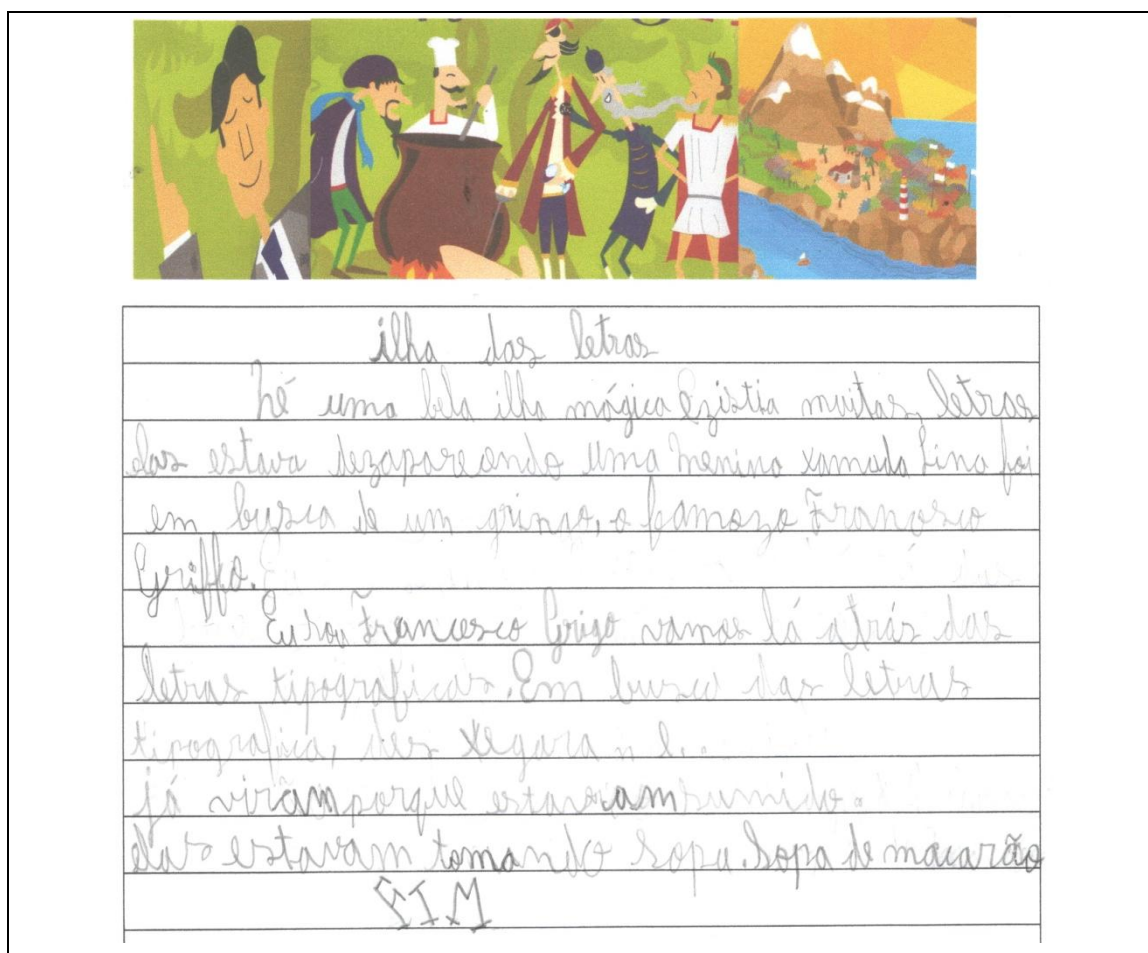 ilha das letras
hé uma bela ilha mágica Ezistia muitas letras
elas estava dezaparesendo uma menina xamada Lina foi
em busca de um gringo, o famozo Francesco
Griffo.
Eu sou Francesco Grigo vamos lá atrás das
letras tipograficas. Em busca das letras
tipografica, xegara
já viram porque estavam sumido.
elas estavam tomando sopa. Sopa de macarão
FIM